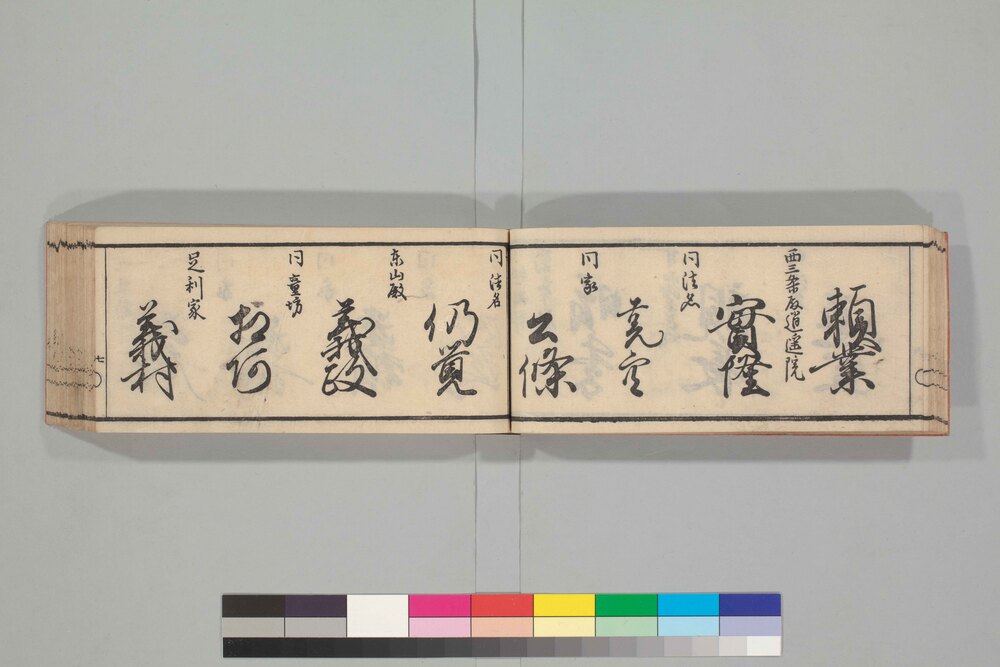 頼業
西三条殿逍遥院
實隆
同法名
尭空
同家
公條
同法名
仍覚
東山殿
義政
同童坊
相阿
足利家
義村
七